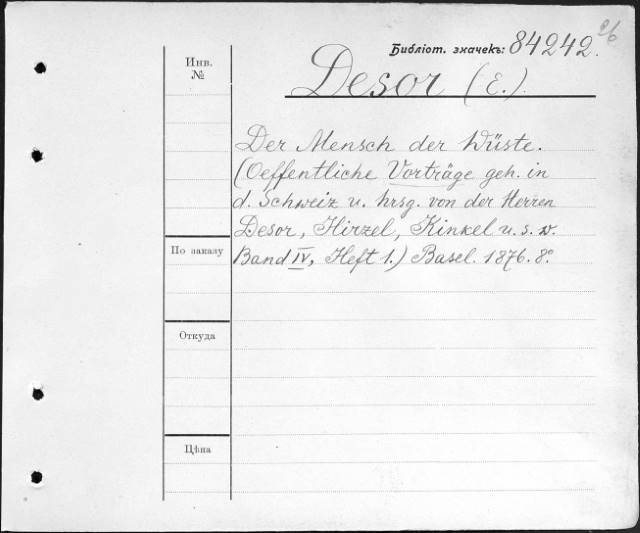 Библіот. значекъ: 84242.
Инв.
№
Desor (E.).
Der Mensch der Wüste.
(Oeffentliche Vorträge geh. in
d. Schweiz u. hrsg. von der Herren
Desor, Hirzel, Kinkel u. s. w.
По заказу
Band IV, Heft 1.) Basel. 1876. 8º
Откуда
Цѣна